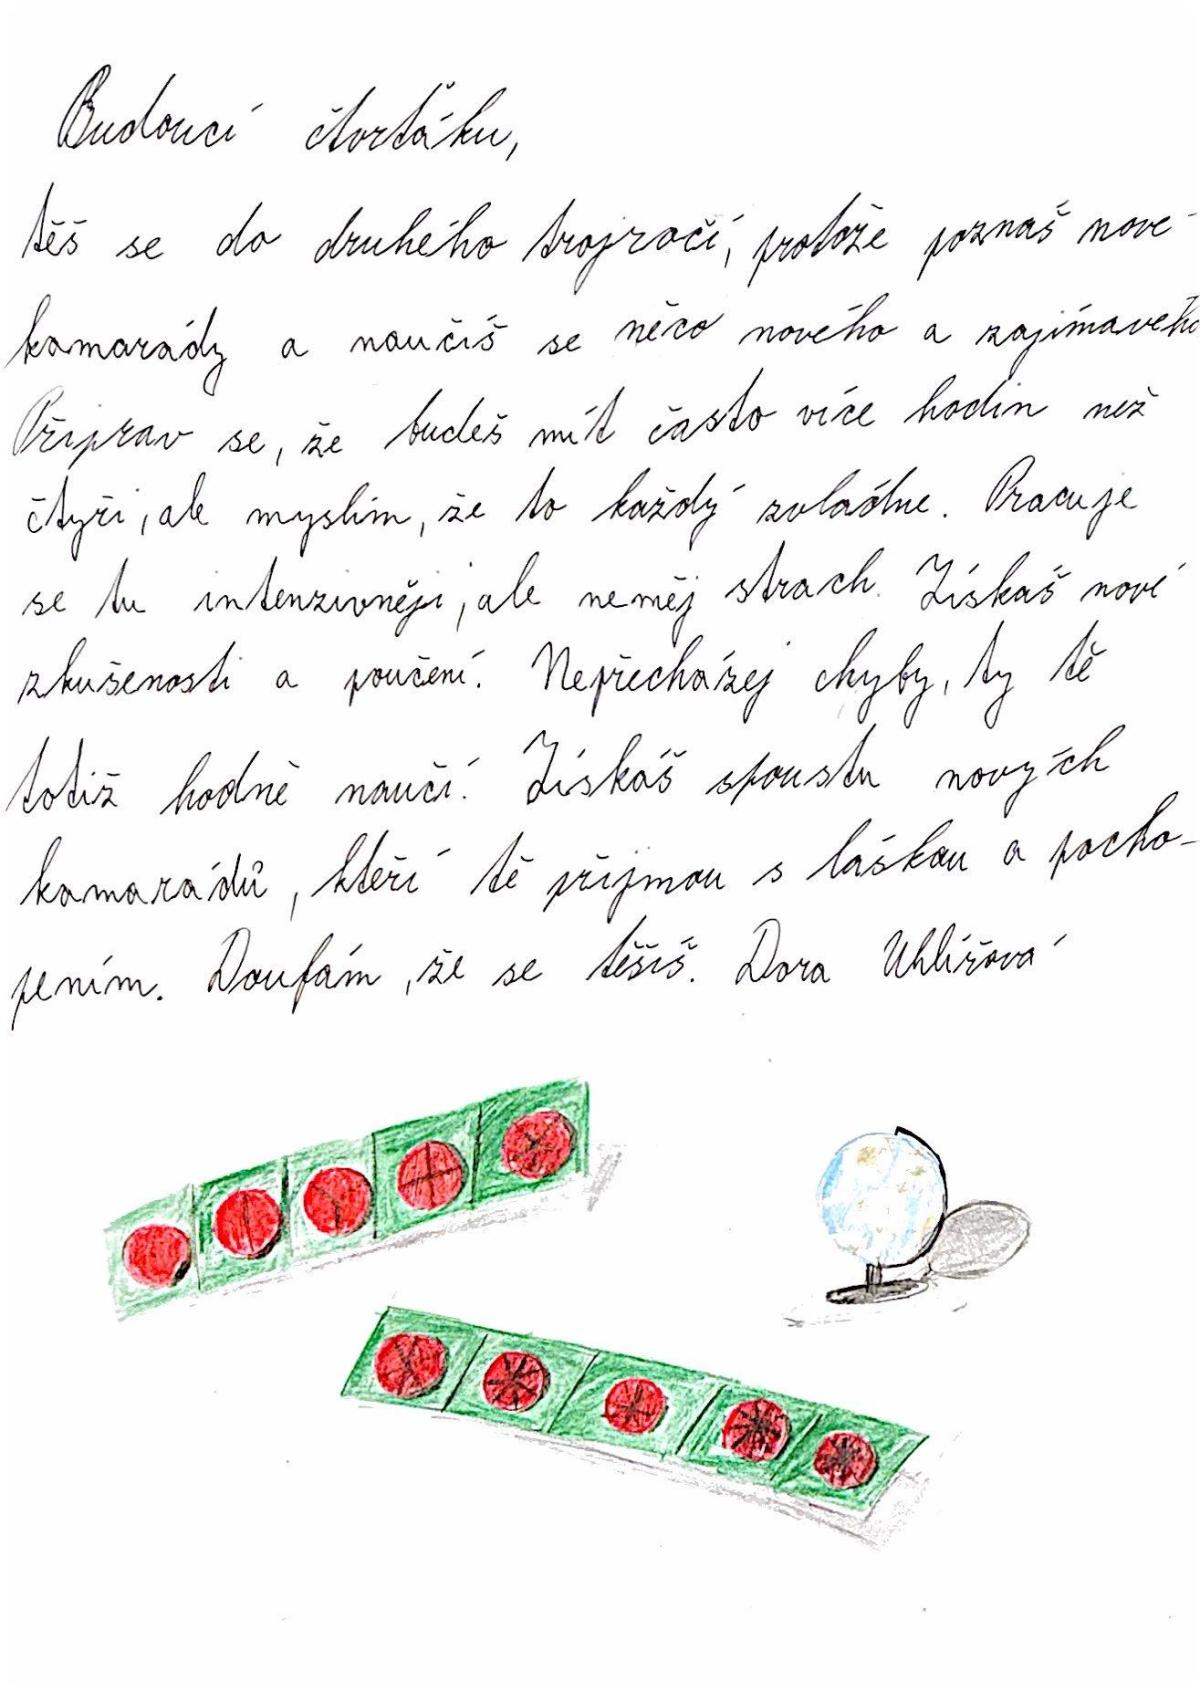 Budoucí čtvrťáku,
těš se do druhého trojročí, protože poznáš nové
kamarády a naučíš se něco nového a zajímavého
Připrav se, že budeš mít často více hodin než
čtyři, ale myslím, že to každý zvládne. Pracuje
se tu intenzivněji, ale neměj strach. Získáš nové
zkušenosti a poučení. Nepřecházej chyby, ty tě
totiž hodně naučí. Získáš spoustu nových
kamarádů, kteří tě přijmou s láskou a pocho-
pením. Doufám, že se těšíš. Dora Uhlířová